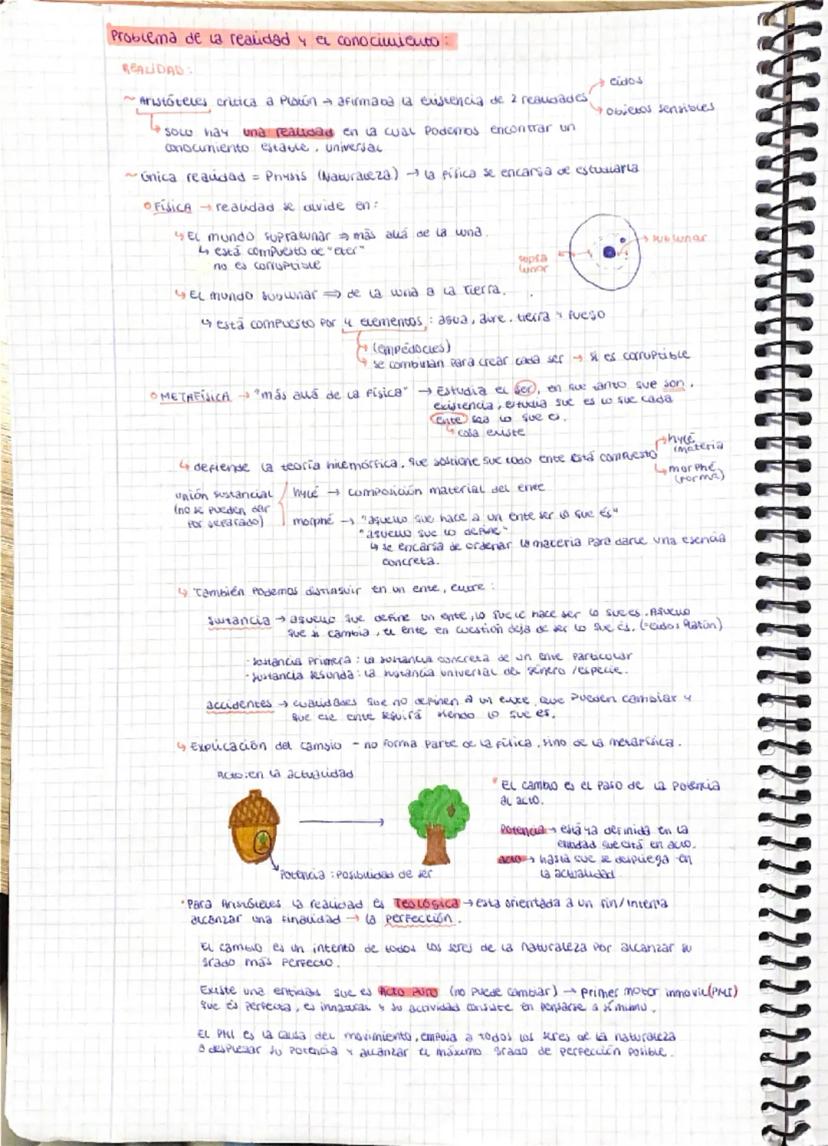 Problema de la realidad y el conocimiento:
REALIDAD:
~ Aristóteles critica a Platón → afirmaba la existencia de 2 realidades
→ eidos
→ objetos sensibles
↳ solo hay una realidad en la cual podemos encontrar un
conocimiento estable, universal
~ única realidad = Physis (Naturaleza) → la física se encarga de estudiarla
○ FÍSICA → realidad se divide en:
↳ El mundo supralunar ⇒ más allá de la luna.
↳ está compuesto de "eter"
no es corruptible
supra
lunar
sublunar
↳ El mundo sublunar ⇒ de la luna a la tierra.
↳ está compuesto por 4 elementos: agua, aire, tierra y fuego
(empédocles)
se combinan para crear cada ser → si es corruptible
○ METAFÍSICA → "más allá de la física" → Estudia el ser, en que tanto que son,
existencia, estudia que es lo que cada
ente sea lo que es.
↳ cosa existe
↳ defiende la teoría hilemórfica, que sostiene que todo ente está compuesto
→ hylé
(materia
→ morphé
(forma)
unión sustancial
(no se pueden dar
por separado)
hylé → composición material del ente
morphé → "aquello que hace a un ente ser lo que es"
"aquello que lo define"
↳ se encarga de ordenar la materia para darle una esencia
concreta.
↳ También podemos distinguir en un ente, entre:
sustancia → aquello que define un ente, lo que le hace ser lo que es. Aquello
que si cambia, el ente en cuestión deja de ser lo que es. (=eidos Platón)
· sustancia primera: la sustancia concreta de un ente particular
· sustancia segunda: la sustancia universal del género/especie.
accidentes → cualidades que no definen a un ente, que pueden cambiar y
que ese ente seguirá siendo lo que es.
↳ Explicación del cambio - no forma parte de la física, sino de la metafísica.
acto: en la actualidad
Potencia: posibilidad de ser
* El cambio es el paso de la potencia
al acto.
Potencia → está ya definida en la
entidad que está en acto.
acto → hasta que se despliega en
la actualidad
· Para Aristóteles la realidad es Teológica → está orientada a un fin/intenta
alcanzar una finalidad → la perfección.
El cambio es un intento de todos los seres de la naturaleza por alcanzar su
grado más perfecto.
Existe una entidad que es Acto puro (no puede cambiar) → primer motor inmovil (PMI)
que es perfecta, es innatural y su actividad consiste en pensarse a sí mismo.
El PMI es la causa del movimiento, empuja a todos los seres de la naturaleza
a desplegar su potencia y alcanzar el máximo grado de perfección posible.